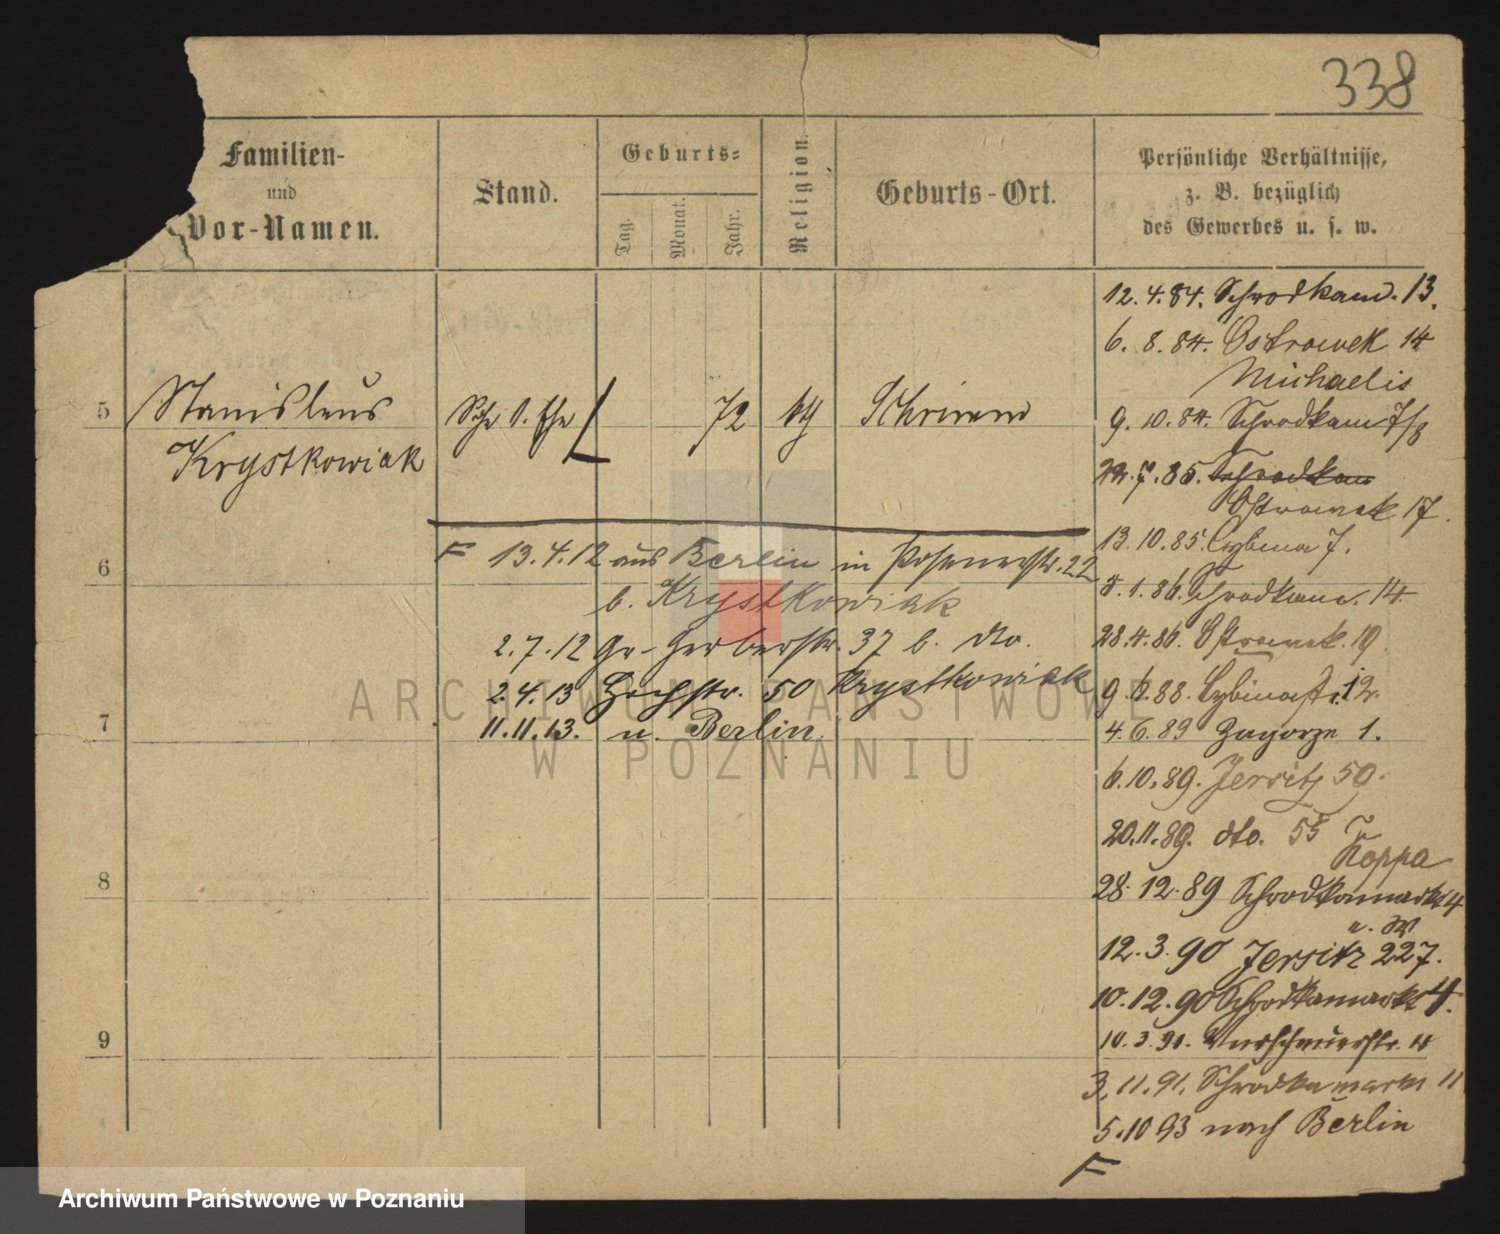 338
Familien-
und
Vor-Namen.
Stand.
Geburts-
Tag.
Monat.
Jahr.
Religion.
Geburts-Ort.
Persönliche Verhältnisse,
z. B. bezüglich
des Gewerbes u. s. w.
5
Stanislaus
Krystkowiak
72
Schrimm
6
7
8
9
F 13.4.12 aus Berlin in Posenerstr. 22
b. Krystkowiak
2.7.12 Gr. Gerberstr. 37 b. dto.
2.4.13 50 Krystkowiak
11.11.13. n. Berlin
12.4.84. Schrodkam. 13.
6. 8. 84. Ostrowek 14
Michaelis
9. 10. 84. Schrodkam 7/8
22.7.85. Schrodkam
Ostrowek 17.
13.10.85. Cybina 7.
8.1.86. Schrodkam. 14.
28.4.86. Ostrowek. 19
9.6.88. Cybinastr. 12.
4.6.89 Zagorze 1.
6.10.89. Jersitz 59.
20.11.89. dto. 55
Koppa
28.12.89 Schrodkamarkt 4
12.3.90 Jersitz 227.
10.12.90 Schrodkamarkt 4.
10.3.91.
3.11.91. Schrodkamarkt 11
5.10 93 nach Berlin
F
ARCHIWUM PAŃSTWOWE
W POZNANIU
Archiwum Państwowe w Poznaniu